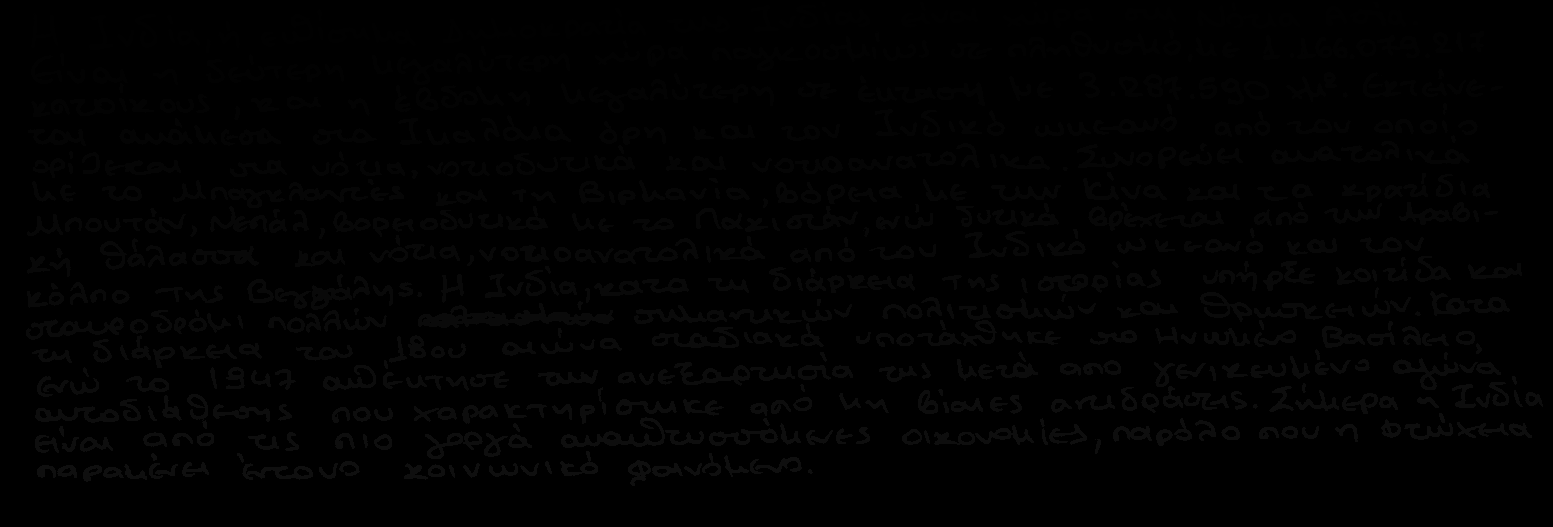 είναι η δεύτερη μεγαλύτερη χώρα παγκοσμίως σε πληθυσμό, με 1.
κατοίκους, και η έβδομη μεγαλύτερη σε έκταση με 3.287.590 χμ². Εκτείνε-
ται ανάμεσα στα Ιμαλάια όρη και τον Ινδικό ωκεανό από τον οποίο
ορίζεται στα νότια, νοτιοδυτικά και νοτιοανατολικά. Συνορεύει ανατολικά
με το Μπαγκλαντές και τη Βιρμανία, βόρεια με την Κίνα και τα κρατίδια
Μπουτάν, Νεπάλ, βορειοδυτικά με το Πακιστάν, ενώ δυτικά βρέχεται από την Αραβι-
κή θάλασσα και νότια, νοτιοανατολικά από τον Ινδικό ωκεανό και τον
κόλπο της Βεγγάλης. Η Ινδία, κατα τη διάρκεια της ιστορίας υπήρξε κοιτίδα και
σταυροδρόμι πολλών σημαντικών πολιτισμών και θρησκειών. Κατα
τη διάρκεια του 18ου αιώνα σταδιακά υποτάχθηκε στο Ηνωμένο Βασίλειο,
ενώ το 1947 απέκτησε την ανεξαρτησία της μετά απο γενικευμένο αγώνα
αυτοδιάθεσης που χαρακτηρίστηκε από μη βίαιες αντιδράσεις. Σήμερα η Ινδία
είναι από τις πιο γοργά αναπτυσσόμενες οικονομίες, παρόλο που η φτώχεια
παραμένει έντονο κοινωνικό φαινόμενο.